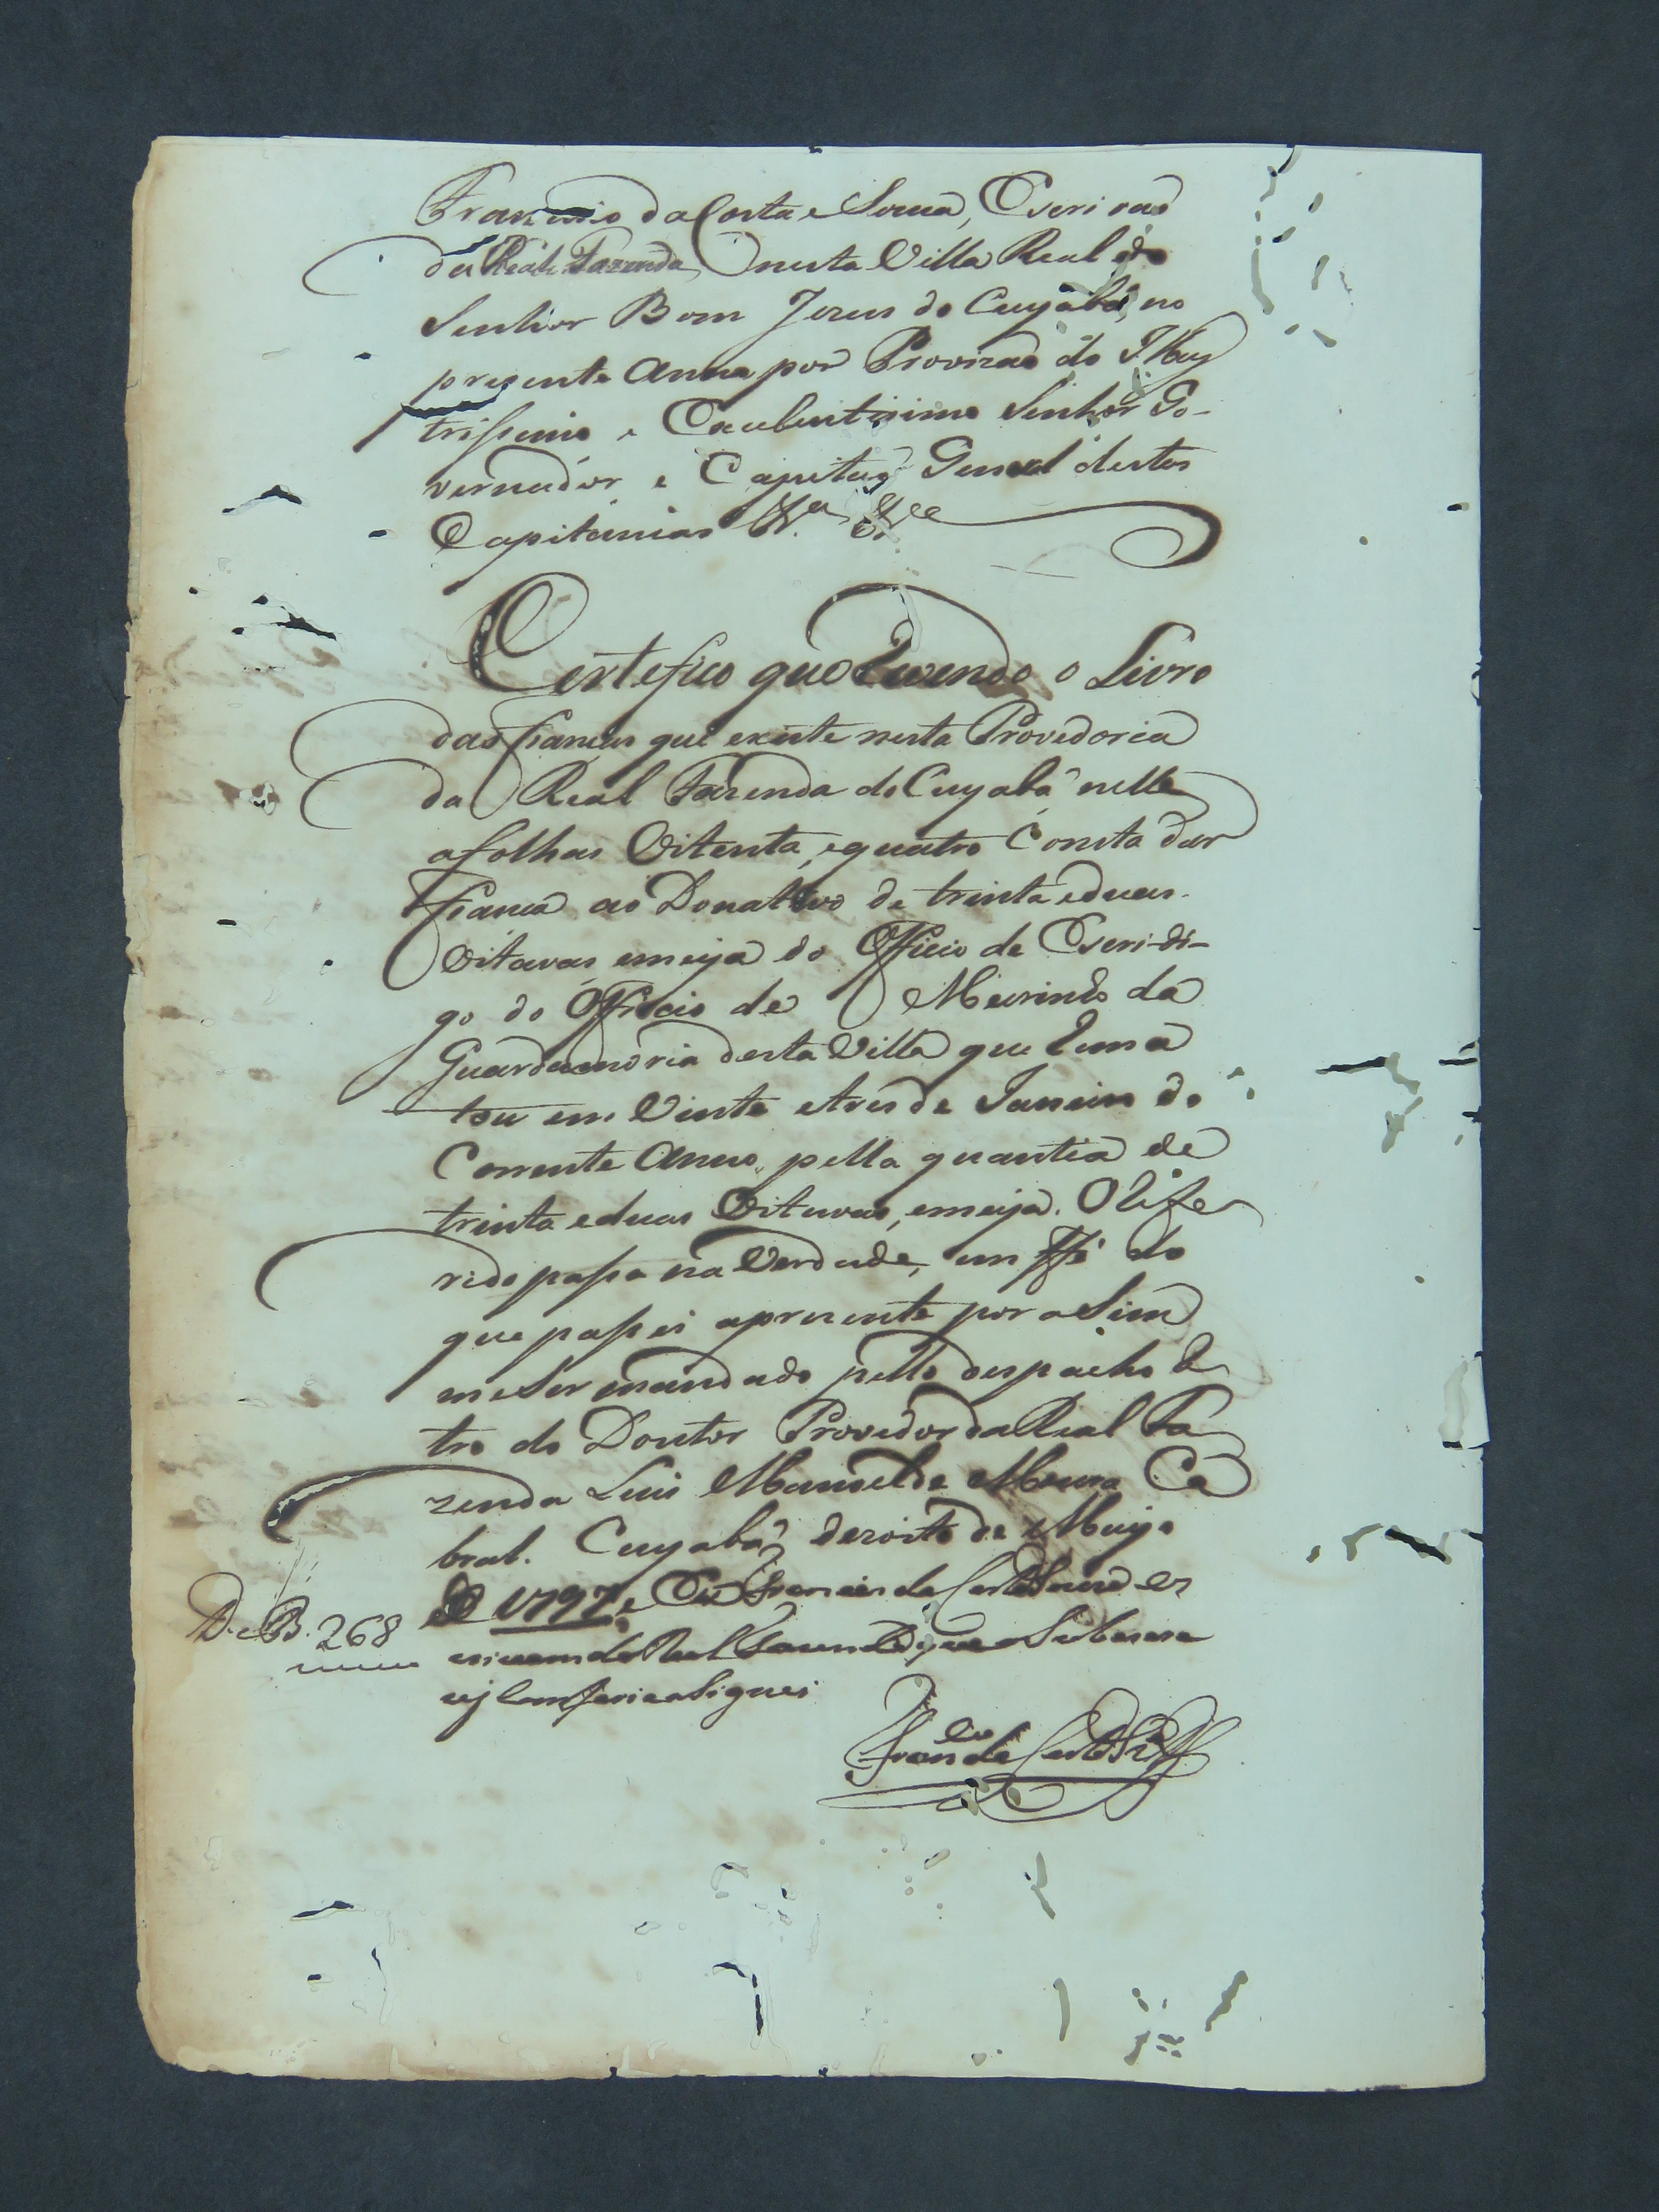 Francisco da Costa e Souza, Escrivaõ
da Real Fazenda nesta Villa Real do
Senhor Bom Jezus do Cuyabá, no
prezente Anno por Provizaõ do Illus
trissimo e Excelentissimo Senhor Go-
vernador e Capitaõ General destas
Capitanias &ª &ce
Certefico que Revendo o Livro
das fiancas que existe nesta Provedoria
da Real Fazenda do Cuyabá nelle
afolhas Oitenta, equatro Consta dar
fianca ao Donativo de trinta eduas
Oitavas emeya do Officio de Escri-di-
go do Officio de Meirinho da
Guardamoria desta Villa que Rema
tou em Vinte etres de Janeiro do
Corrente Anno, pella quantia de
trinta eduas Oitavas, emeya. O Refe
rido passa na Verdade, em ffé do
que passei aprezente por aSim
meSer mandado pello despacho Re
tro do Doutor Provedor da Real Fa
zenda Luis Manoel de Moura Ca
bral. Cuyabá dezoito de Mayo
de 1797, e Eu Francisco da Costa Souza es
crivam da Real Fazenda que o Sobescre
vy Comfery e aSignei
D. e B. 268
Franco da Costa Sza